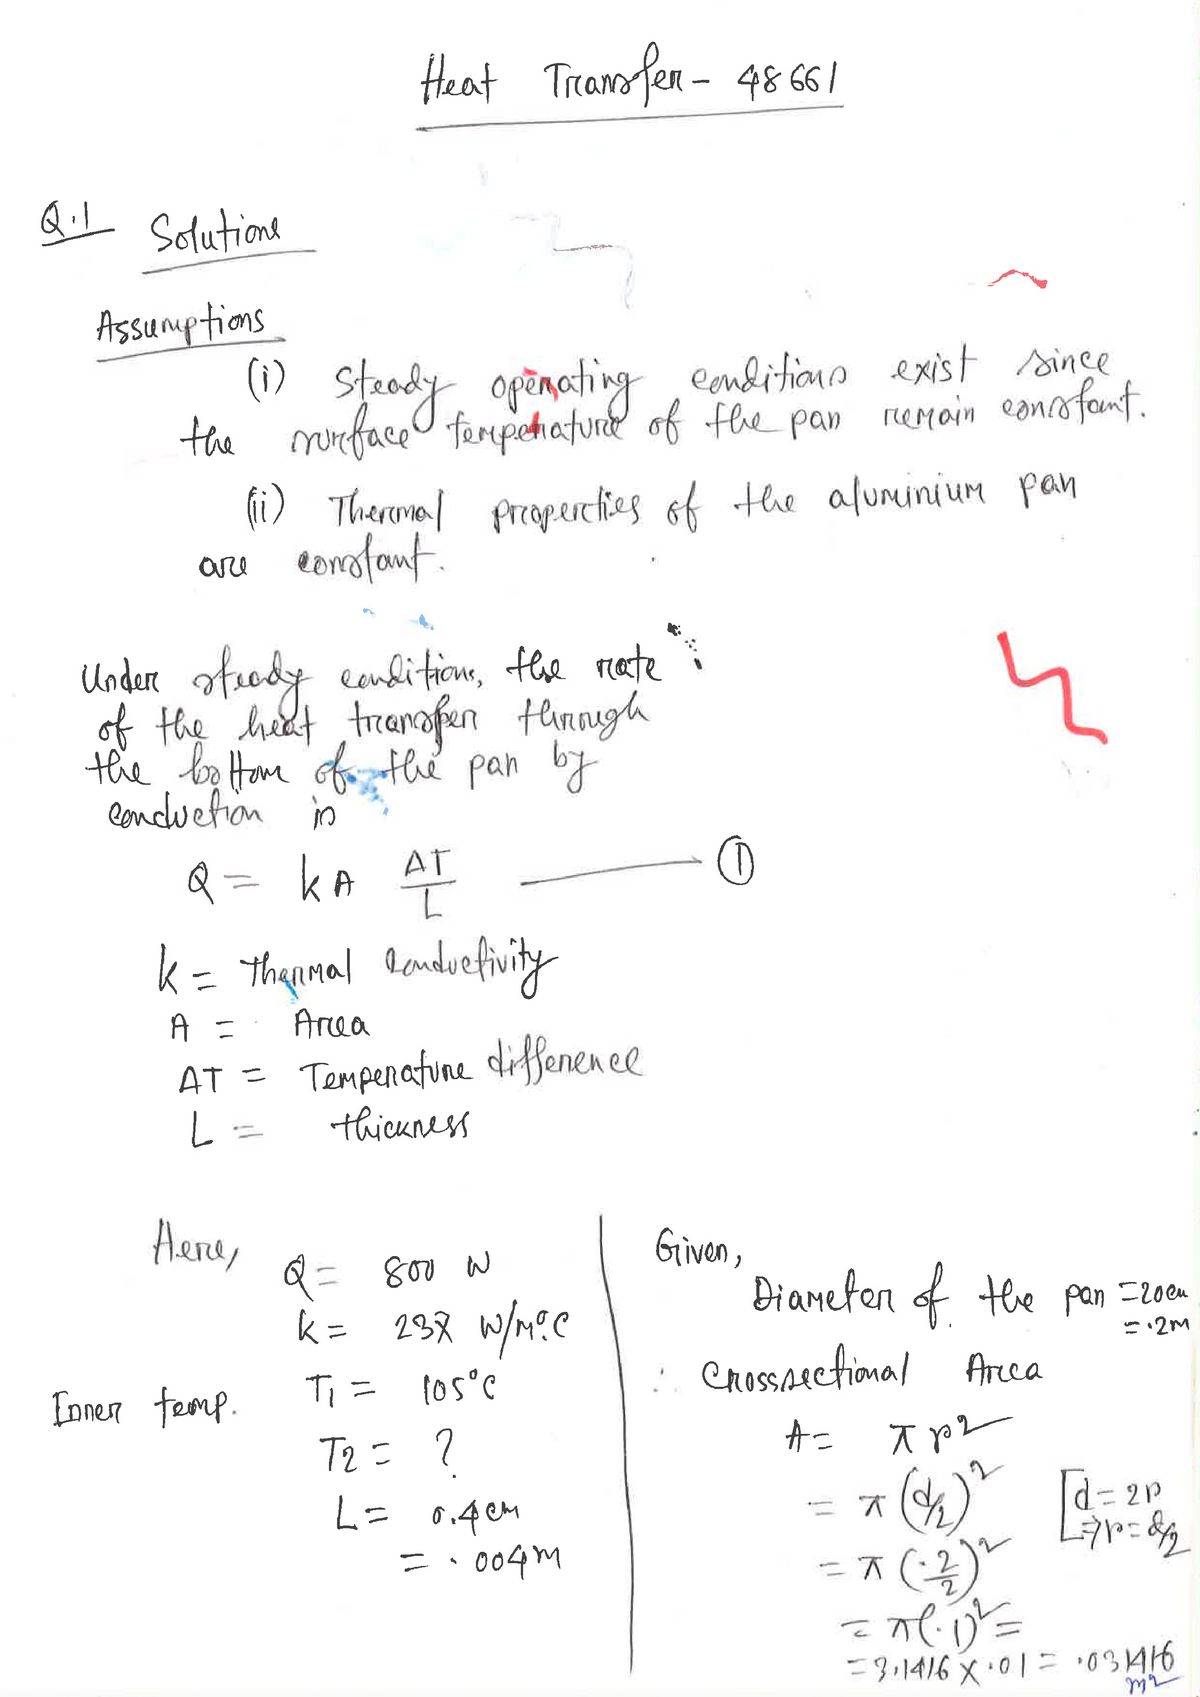 Heat Transfer - 48661
Q.1 Solutions
Assumptions
(i) Steady operating conditions exist since
the surface temperature of the pan remain constant.
(ii) Thermal properties of the aluminium pan
are constant.
Under steady conditions, the rate
of the heat transfer through
the bottom of the pan by
conduction is
Q = kA ΔT/L ——— ①
k = Thermal Conductivity
A = Area
ΔT = Temperature difference
L = thickness
Here,
Q = 800 W
k = 237 W/m°C
Inner temp. T1 = 105°C
T2 = ?
L = 0.4 cm
= .004 m
Given,
Diameter of the pan = 20 cm
= .2m
∴ Crosssectional Area
A = π r²
= π (d/2)² [d = 2r
⇒ r = d/2
= π (.2/2)²
= π(.1)² =
= 3.1416 × .01 = .031416
m²